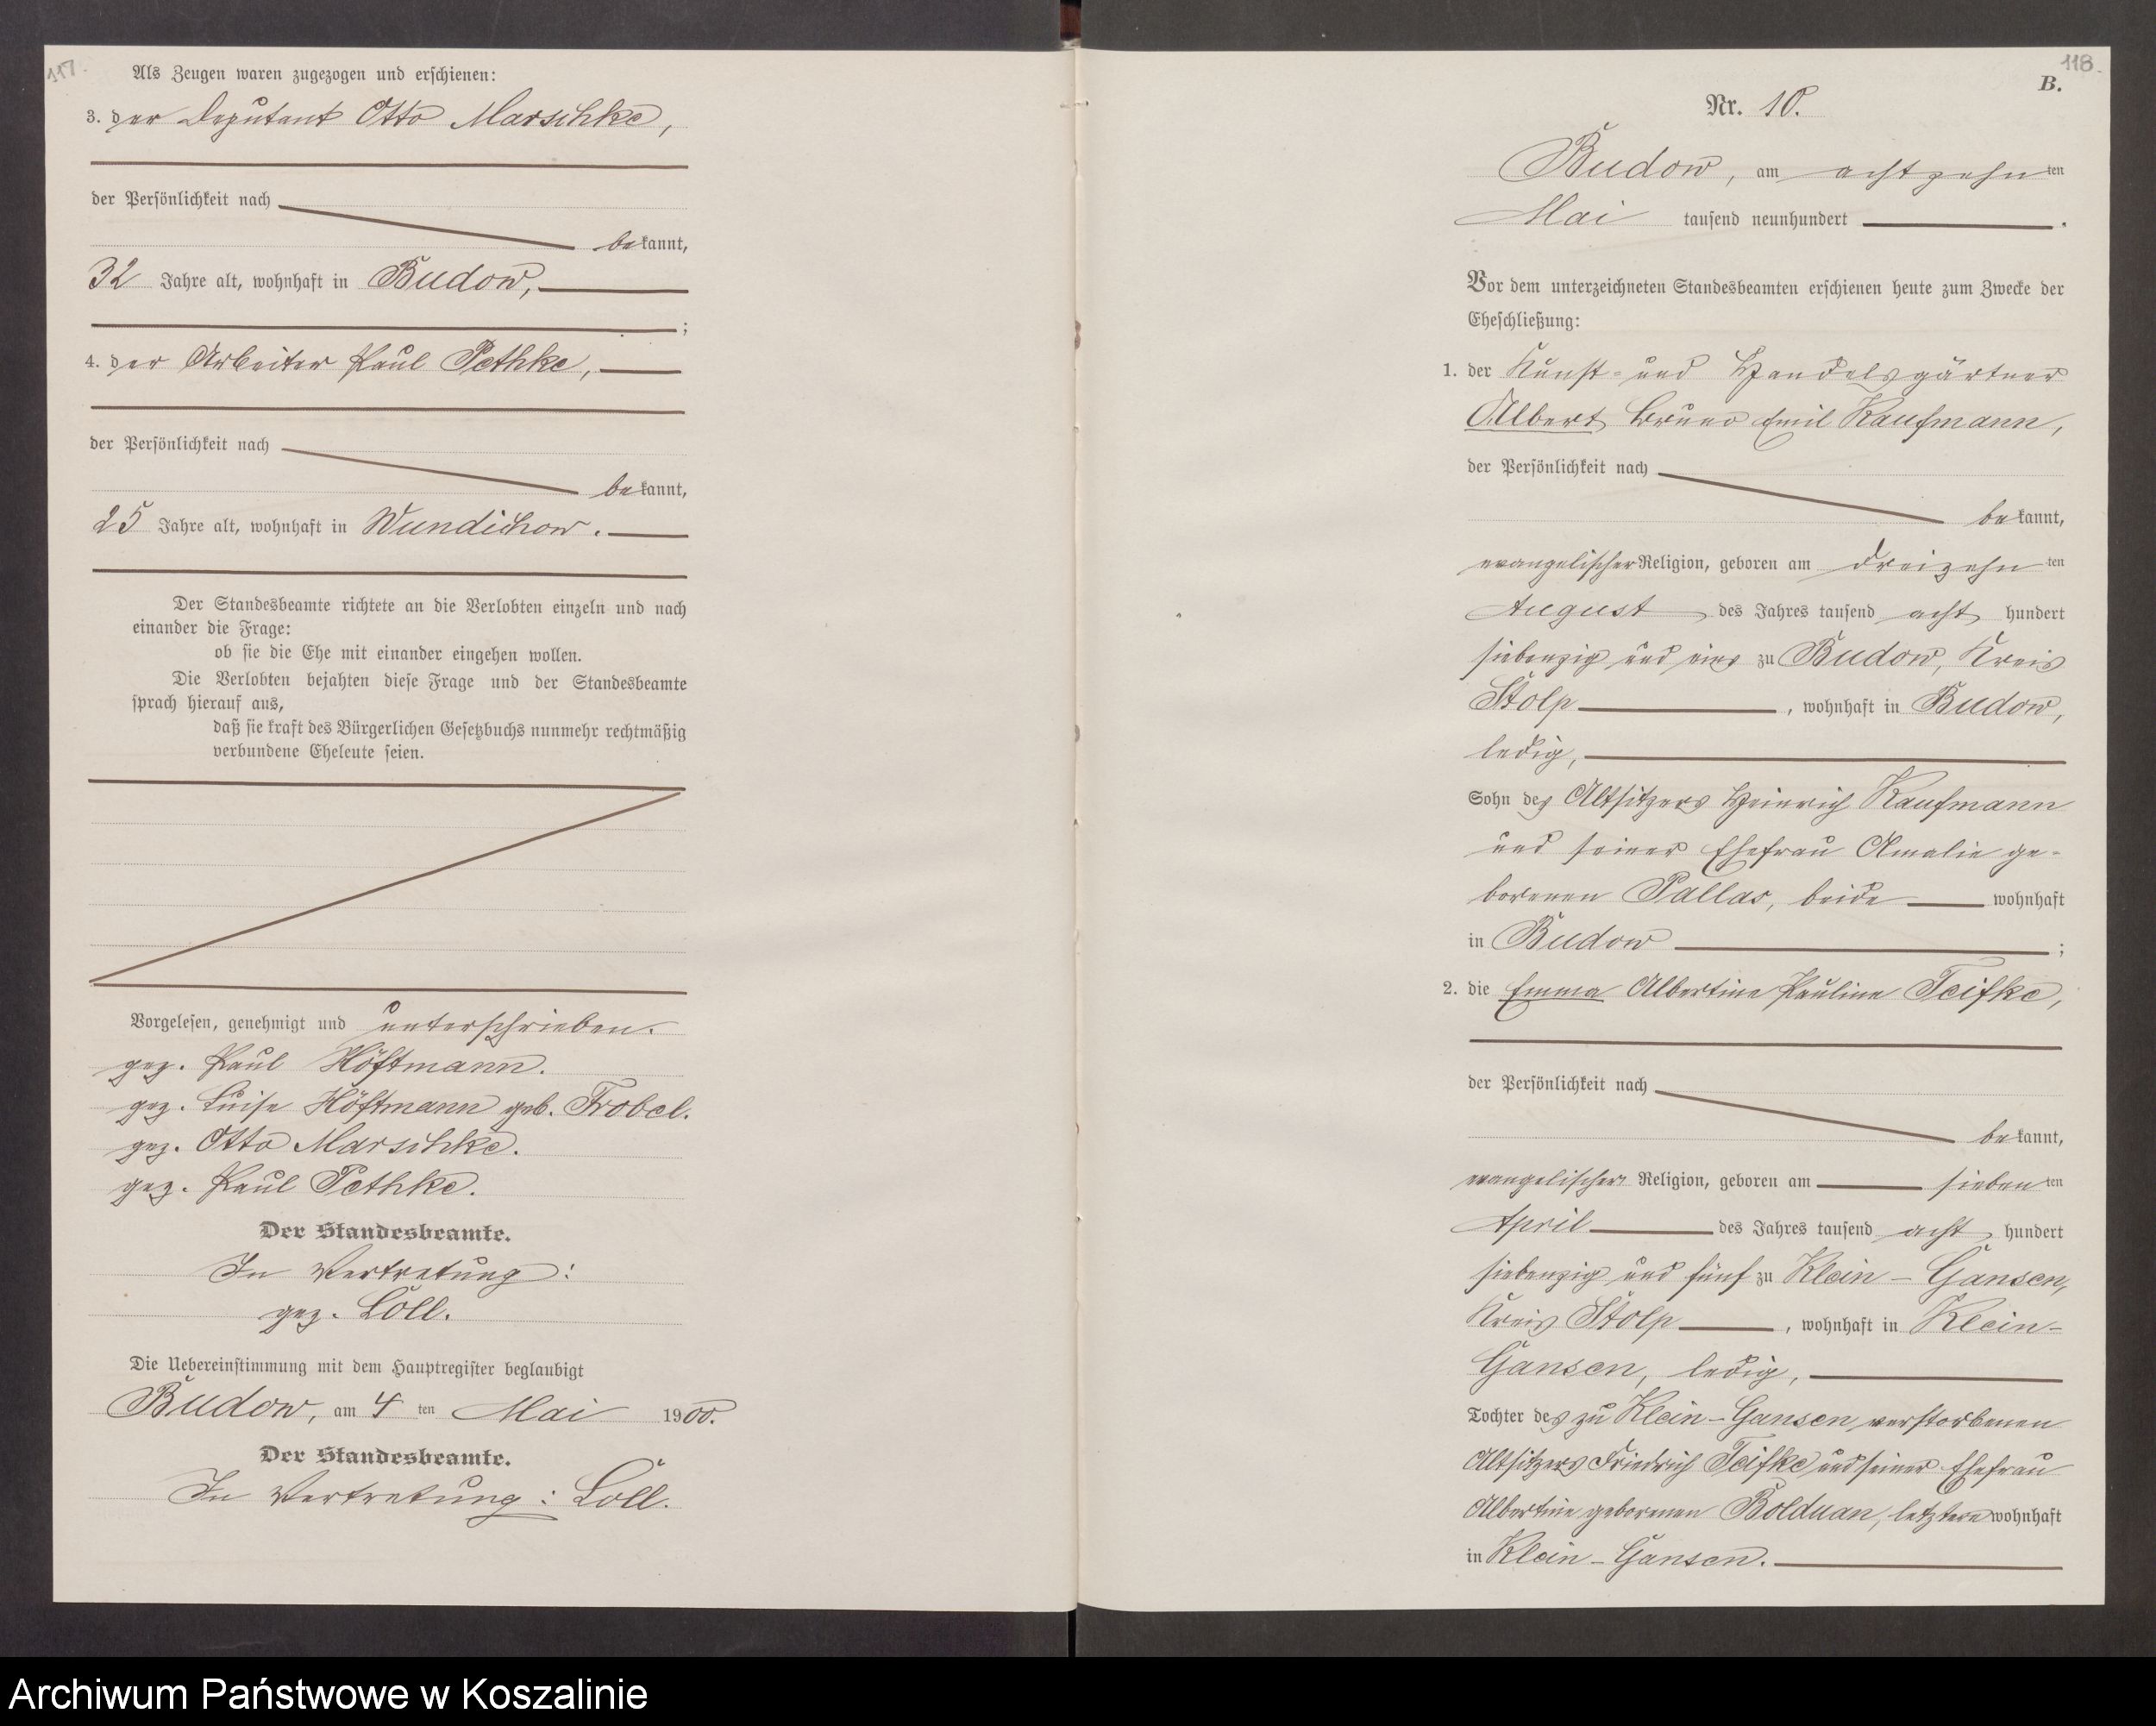 117.
Als Zeugen waren zugezogen und erschienen:
3. der Deputant Otto Marschke,
der Persönlichkeit nach
bekannt,
32 Jahre alt, wohnhaft in Budow,
;
4. der Arbeiter Paul Pethke,
der Persönlichkeit nach
bekannt,
25 Jahre alt, wohnhaft in Wundichow.
Der Standesbeamte richtete an die Verlobten einzeln und nach
einander die Frage:
ob sie die Ehe mit einander eingehen wollen.
Die Verlobten bejahten diese Frage und der Standesbeamte
sprach hierauf aus,
daß sie kraft des Bürgerlichen Gesetzbuchs nunmehr rechtmäßig
verbundene Eheleute seien.
Vorgelesen, genehmigt und unterschrieben.
gez. Paul Höftmann.
gez. Luise Höftmann geb. Trobel.
gez. Otto Marschke.
gez. Paul Pethke.
Der Standesbeamte.
In Vertretung:
gez. Löll.
Die Uebereinstimmung mit dem Hauptregister beglaubigt
Budow, am 4 ten Mai 1900.
Der Standesbeamte.
In Vertretung: Löll.
118.
B.
Nr. 10.
Budow, am achtzehnten
Mai tausend neunhundert .
Vor dem unterzeichneten Standesbeamten erschienen heute zum Zwecke der
Eheschließung:
1. der Kunst- und Handelsgärtner
Albert Bruno Emil Kaufmann,
der Persönlichkeit nach
bekannt,
evangelischer Religion, geboren am dreizehnten
August des Jahres tausend acht hundert
siebenzig und eins zu Budow, Kreis
Stolp , wohnhaft in Budow,
ledig,
Sohn des Altsitzers Heinrich Kaufmann
und seiner Ehefrau Amalie ge-
borenen Pallas, beide wohnhaft
in Budow ;
2. die Emma Albertine Pauline Teifke,
der Persönlichkeit nach
bekannt,
evangelischer Religion, geboren am siebenten
April des Jahres tausend acht hundert
siebenzig und fünf zu Klein-Gansen,
Kreis Stolp , wohnhaft in Klein-
Gansen, ledig,
Tochter des zu Klein-Gansen verstorbenen
Altsitzers Friedrich Teifke und seiner Ehefrau
Albertine geborenen Bolduan, letztere wohnhaft
in Klein-Gansen.
Archiwum Państwowe w Koszalinie